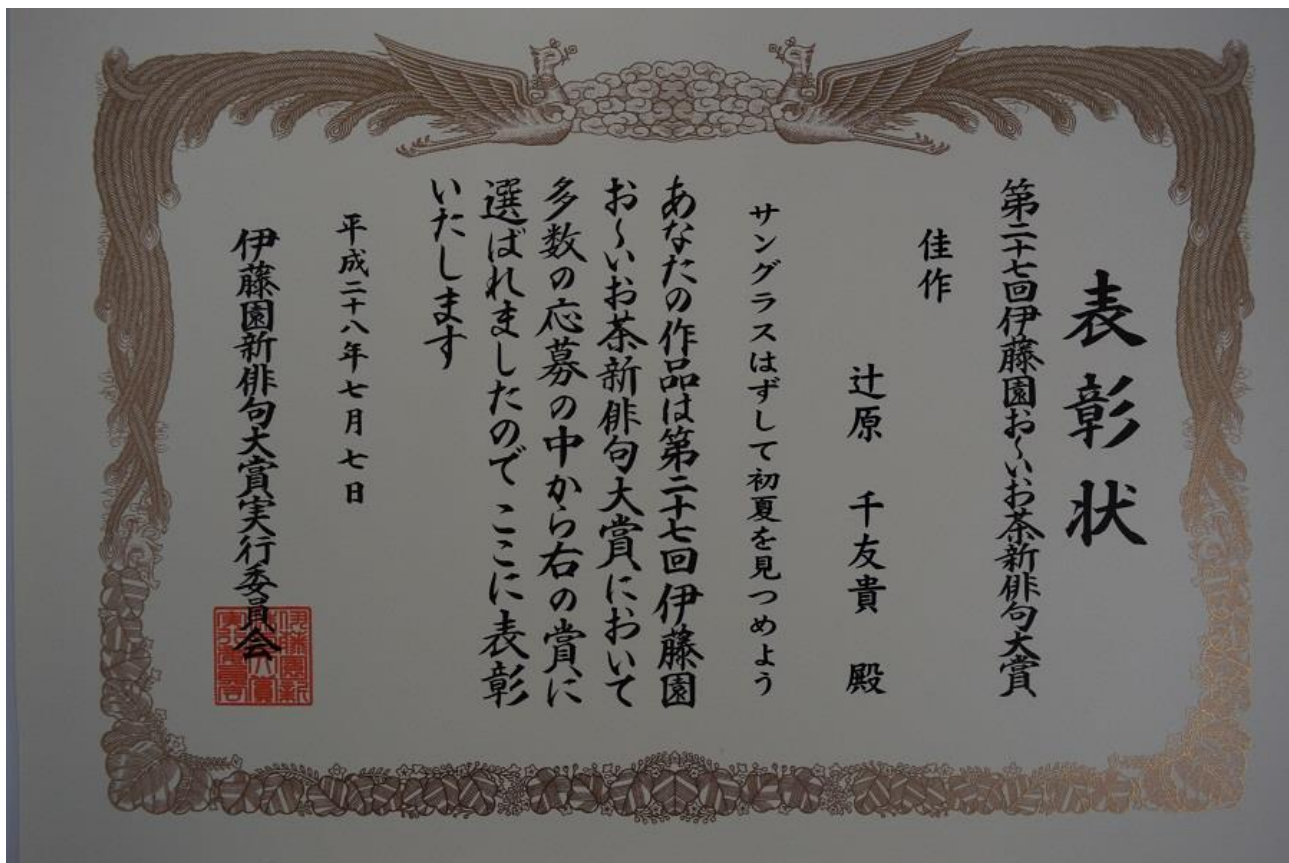 表彰状
第二十七回伊藤園お〜いお茶新俳句大賞
佳作
辻原 千友貴 殿
サングラスはずして初夏を見つめよう
あなたの作品は第二十七回伊藤園
お〜いお茶新俳句大賞において
多数の応募の中から右の賞に
選ばれましたので ここに表彰
いたします
平成二十八年七月七日
伊藤園新俳句大賞実行委員会